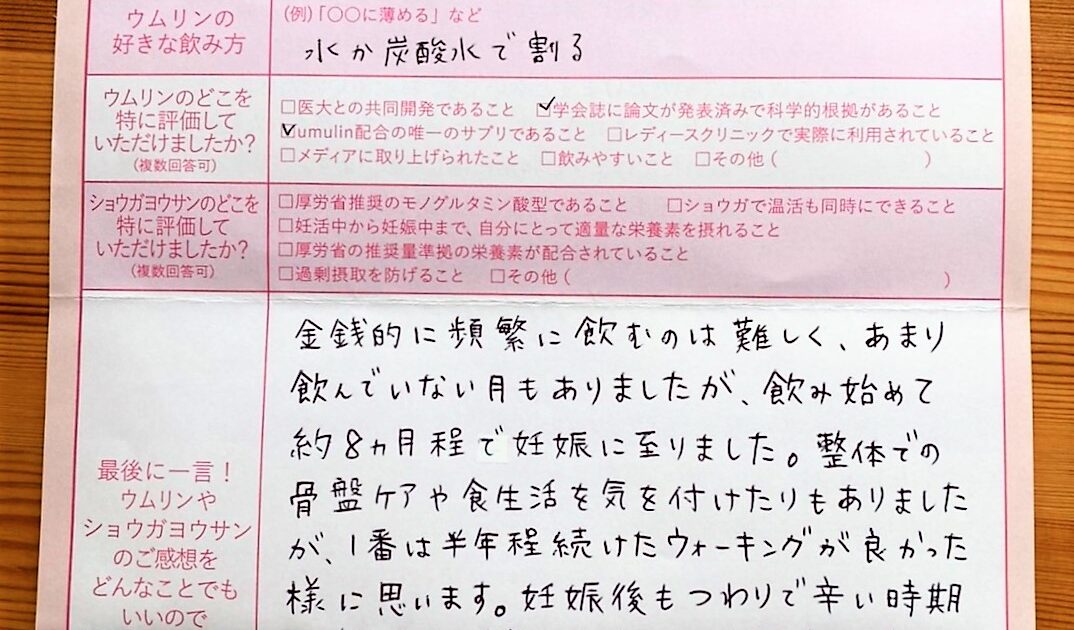 ウムリンの
好きな飲み方
(例)「〇〇に薄める」など
水か炭酸水で割る
ウムリンのどこを
特に評価して
いただけましたか?
(複数回答可)
□医大との共同開発であること ☑学会誌に論文が発表済みで科学的根拠があること
☑umulin配合の唯一のサプリであること □レディースクリニックで実際に利用されていること
□メディアに取り上げられたこと □飲みやすいこと □その他( )
ショウガヨウサンのどこを
特に評価して
いただけましたか?
(複数回答可)
□厚労省推奨のモノグルタミン酸型であること □ショウガで温活も同時にできること
□妊活中から妊娠中まで、自分にとって適量な栄養素を摂れること
□厚労省の推奨量準拠の栄養素が配合されていること
□過剰摂取を防げること □その他( )
最後に一言!
ウムリンや
ショウガヨウサン
のご感想を
どんなことでも
いいので
金銭的に頻繁に飲むのは難しく、あまり
飲んでいない月もありましたが、飲み始めて
約8ヵ月程で妊娠に至りました。整体での
骨盤ケアや食生活を気を付けたりもありました
が、1番は半年程続けたウォーキングが良かった
様に思います。妊娠後もつわりで辛い時期